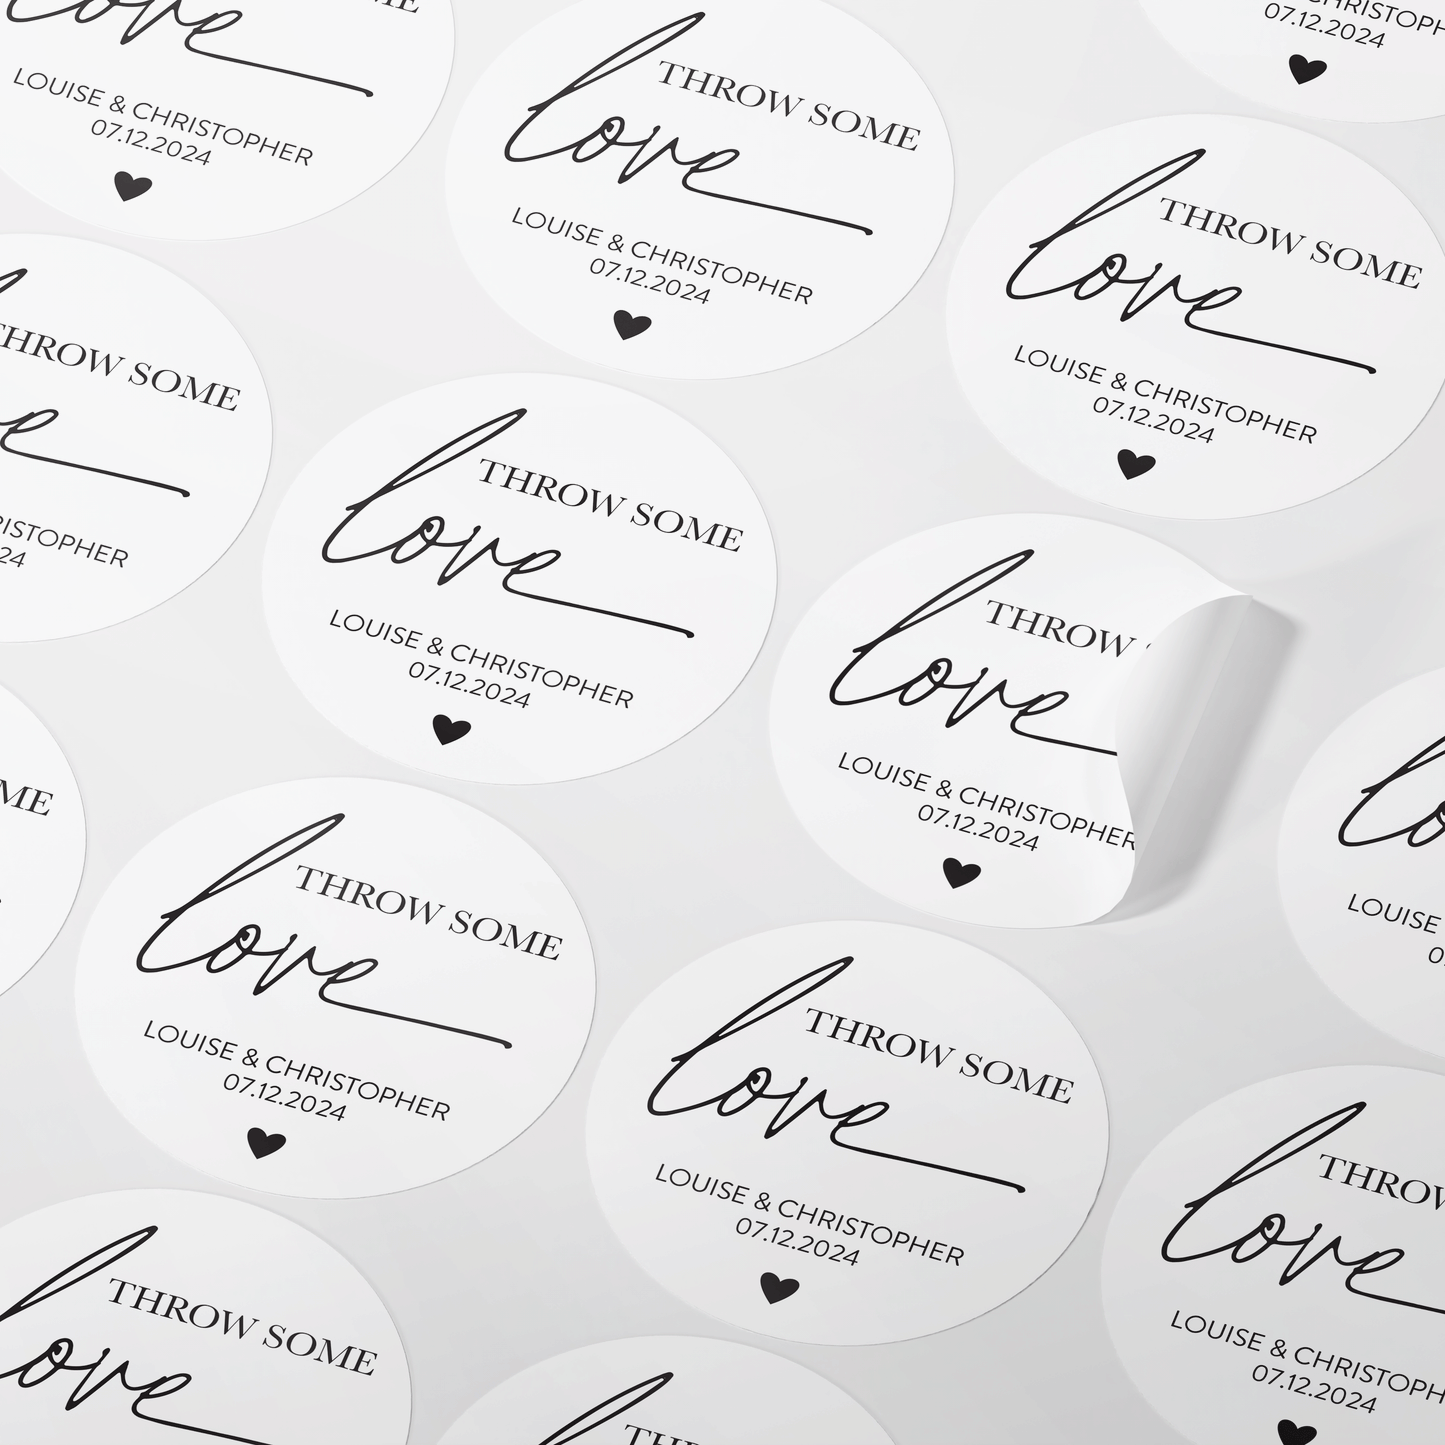 love
LOUISE & CHRISTOPHER
07.12.2024
THROW SOME
love
LOUISE & CHRISTOPHER
07.12.2024
07.12.2024
THROW SOME
love
LOUISE & CHRISTOPHER
07.12.2024
THROW SOME
THROW SOME
love
LOUISE & CHRISTOPHER
07.12.2024
THROW
love
LOUISE & CHRISTOPHER
07.12.2024
THROW SOME
love
LOUISE & CHRISTOPHER
07.12.2024
THROW SOME
love
LOUISE & CHRISTOPHER
07.12.2024
LOUISE
THROW
love
LOUISE & CHRISTOPH
07.12.2024
THROW SOME
love
THROW